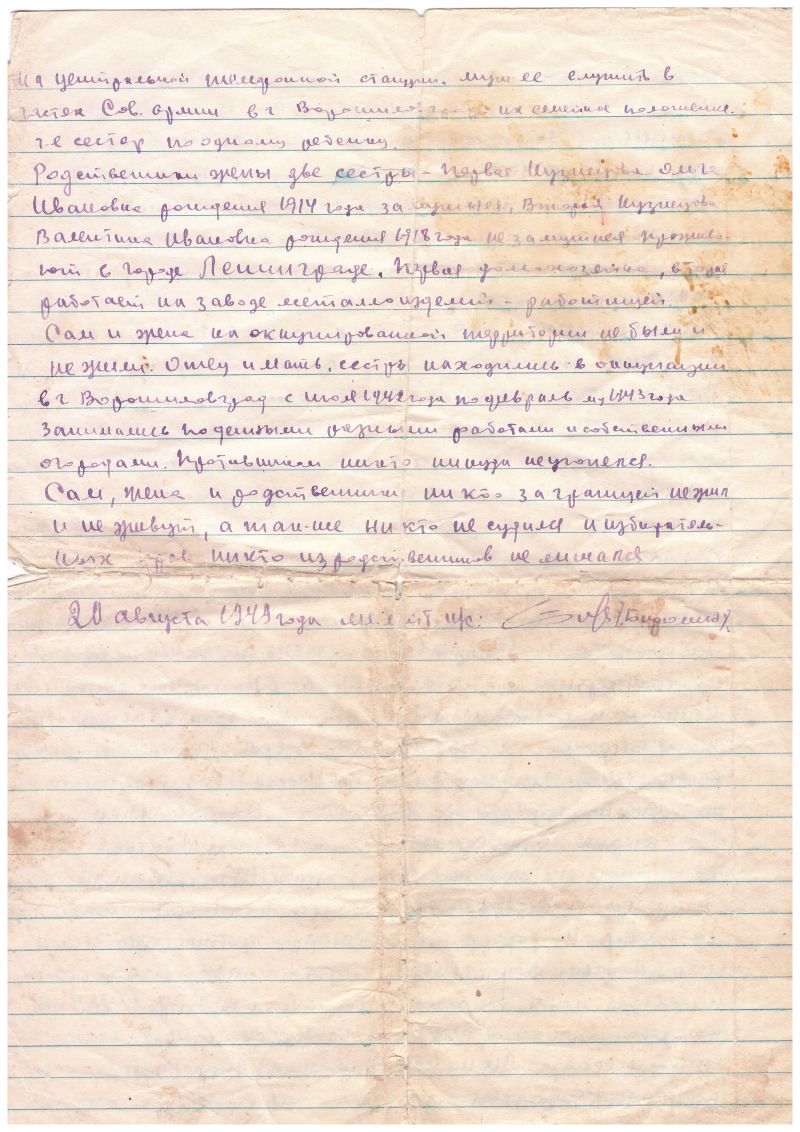 на центральной телефонной станции. муж ее служит в
частях Сов. армии в г Ворошиловград их семейное положение.
т е сестер по одному ребенку.
Родственники жены две сестры - первая Кузнецова Ольга
Ивановна рождения 1914 года замужняя, Вторая Кузнецова
Валентина Ивановна рождения 1918 года незамужняя прожива-
ют в городе Ленинграде. первая домохозяйка, вторая
работает на заводе металлоизделий - работницей.
Сам и жена на окупированной территории не были и
не жили. Отец и мать, сестры находились в оккупации
в г Ворошиловград с июля 1942 года по февраль м 1943 года
занимались поденными разными работами и собственными
огородами. Противником никто никуда не угонялся.
Сам, жена и родственники ни кто за границей не жил
и не живут, а так-же ни кто не судился и избиратель-
ных прав никто из родственников не лишался
20 августа 1949 года